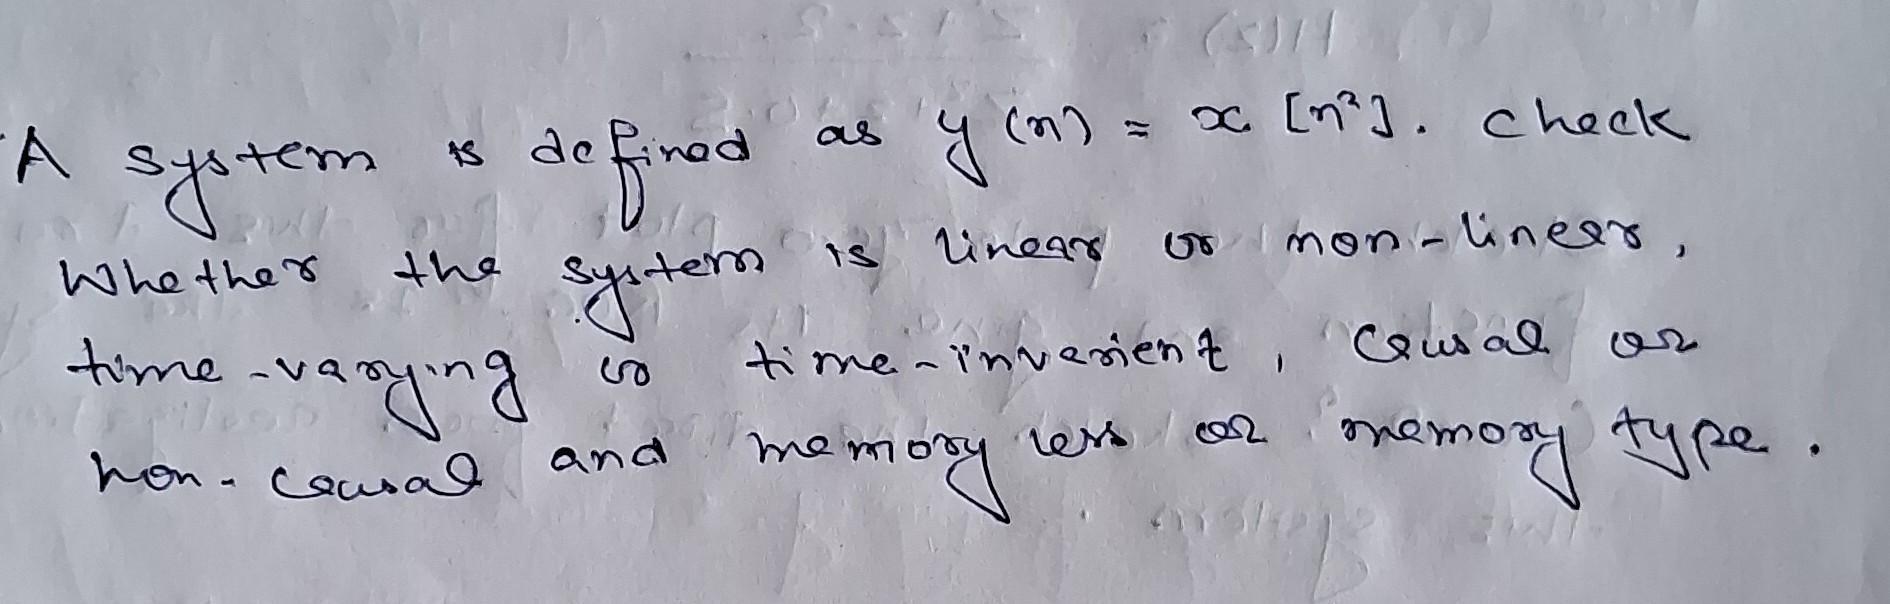 A system is defined as y(n) = x[n²]. check
whether the system is linear or non-linear,
time-varying or time-invarient, causal or
non-causal and memory less or memory type.